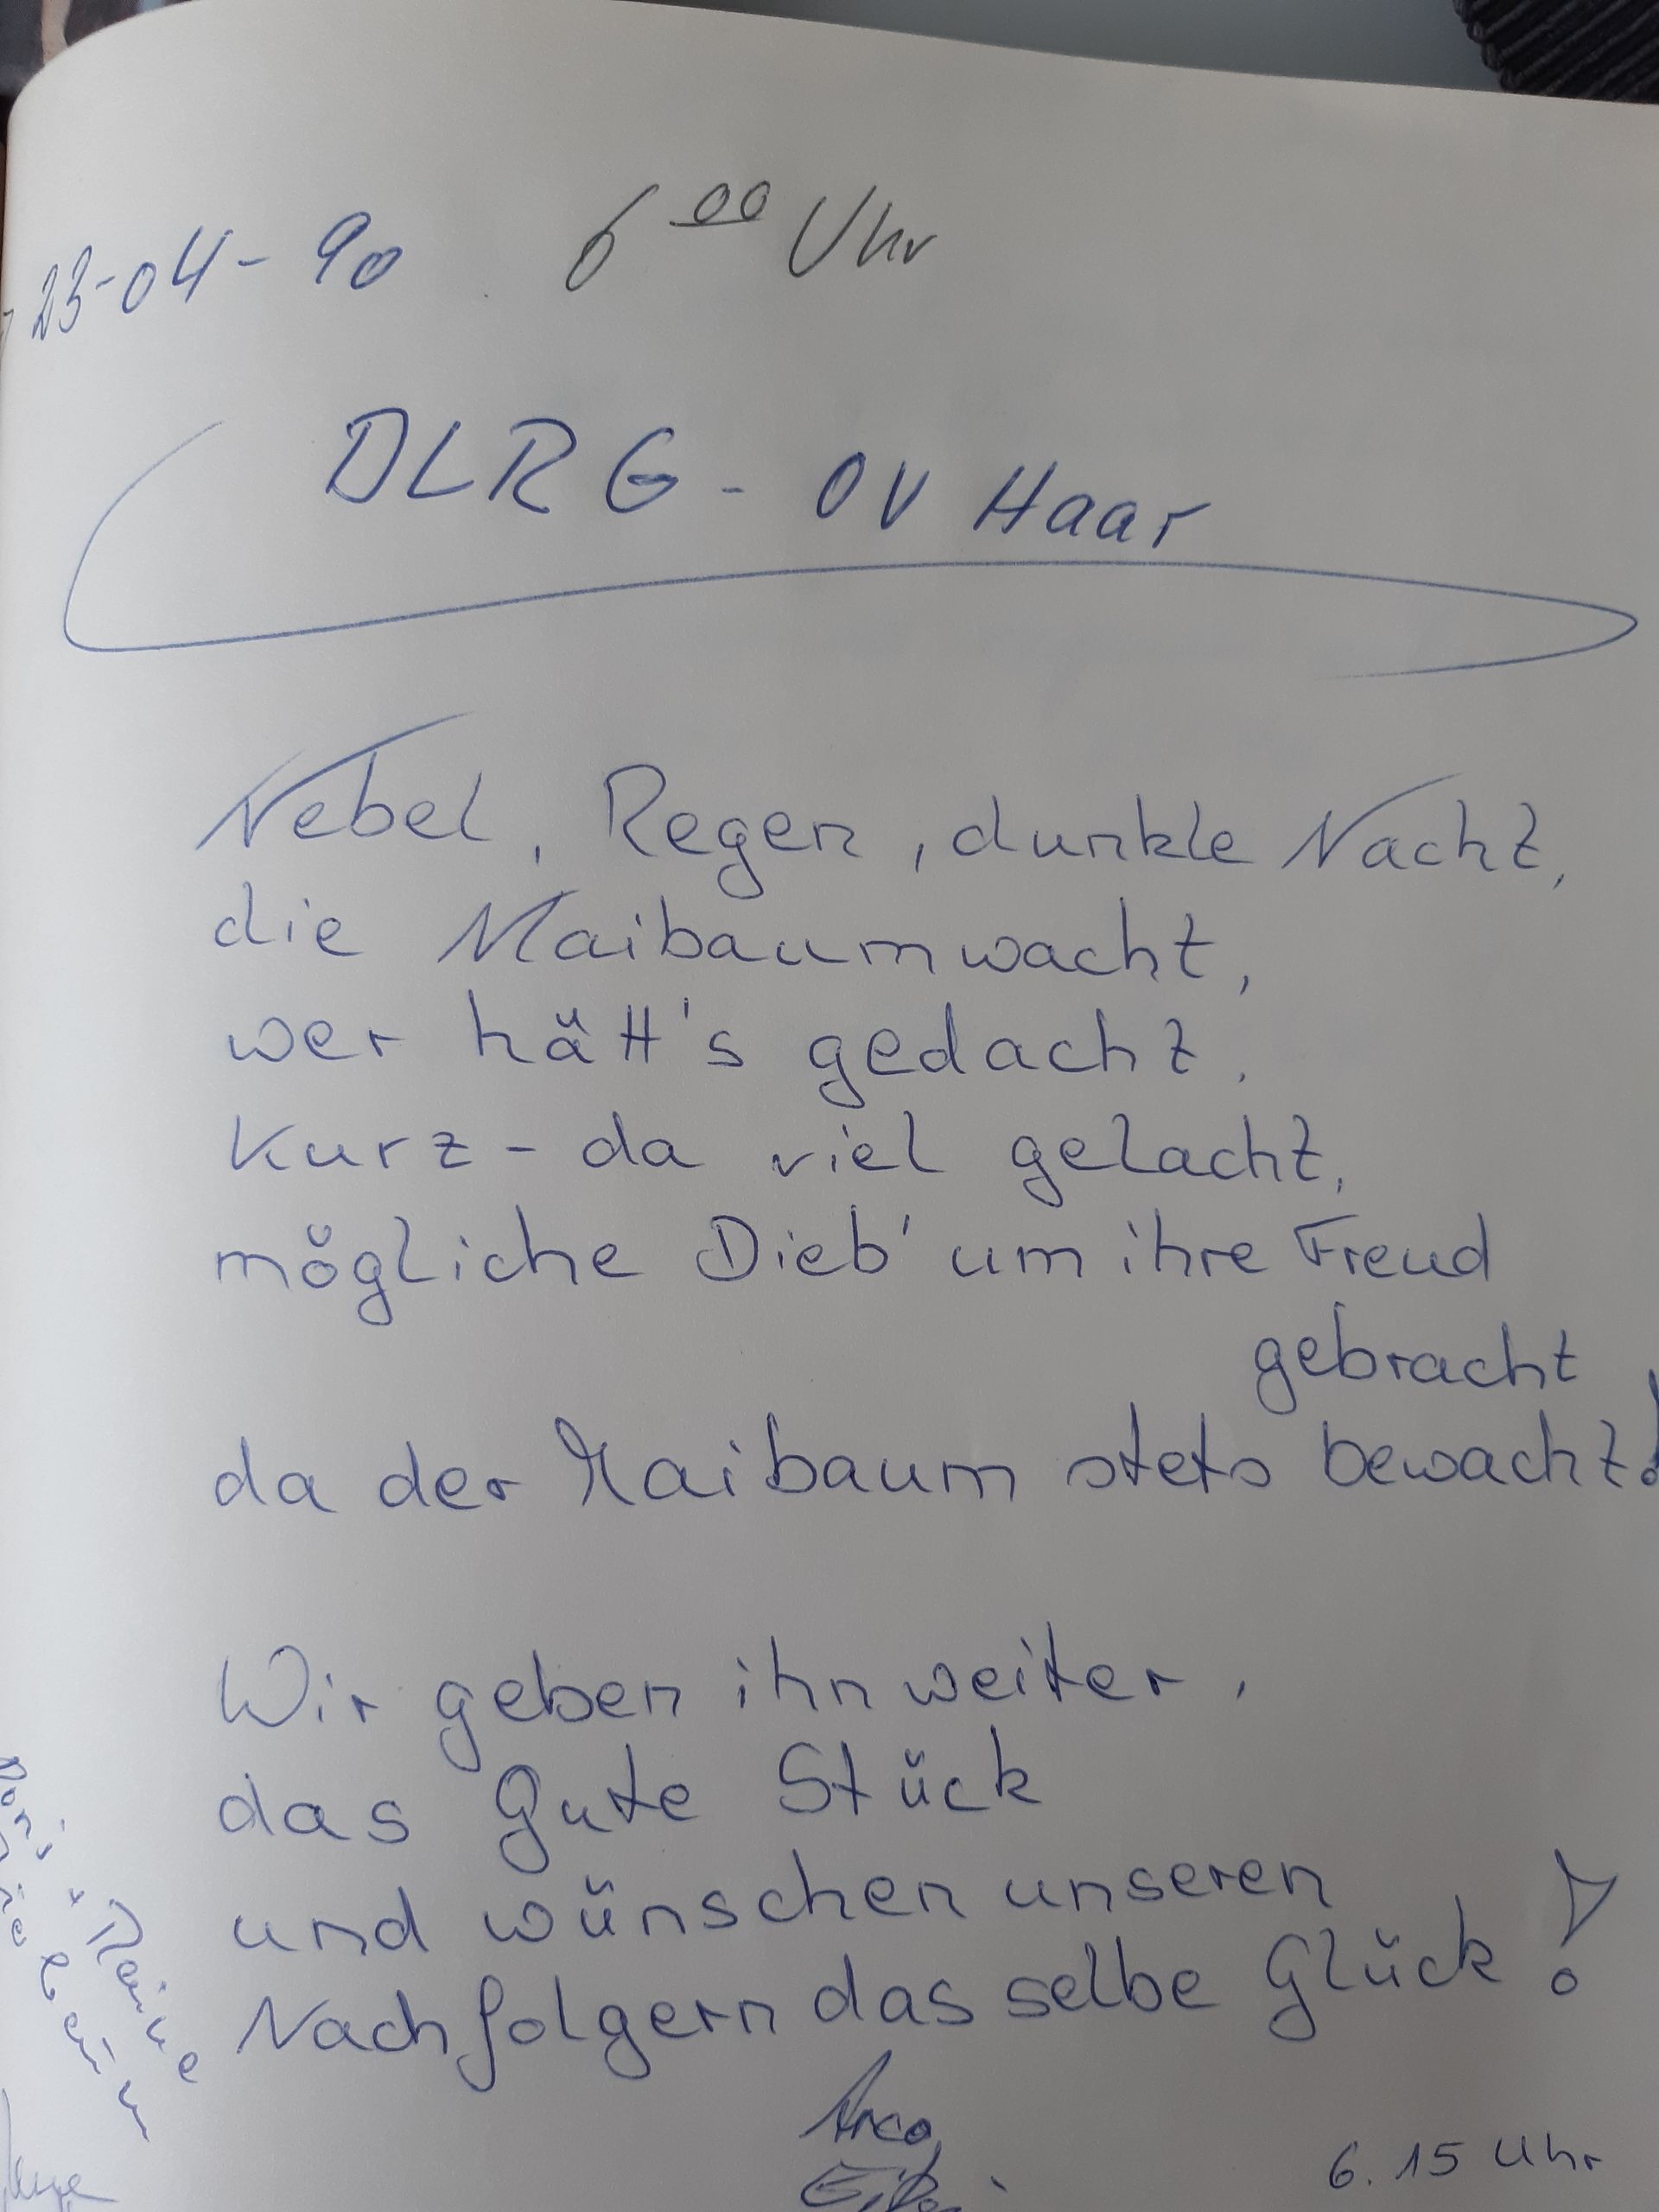 23-04-90 6 00 Uhr
DLRG - OV Haar
Nebel, Regen, dunkle Nacht,
die Maibaumwacht,
wer hätt's gedacht,
Kurz - da viel gelacht,
mögliche Dieb' um ihre Freud
gebracht
da der Maibaum stets bewacht!
Wir geben ihn weiter,
das gute Stück
und wünschen unseren
Nachfolgern das selbe Glück!
6.15 Uhr